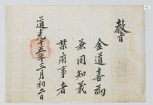 教旨
金道喜爲
兼同知義
禁府事者
道光十五年三月初二日